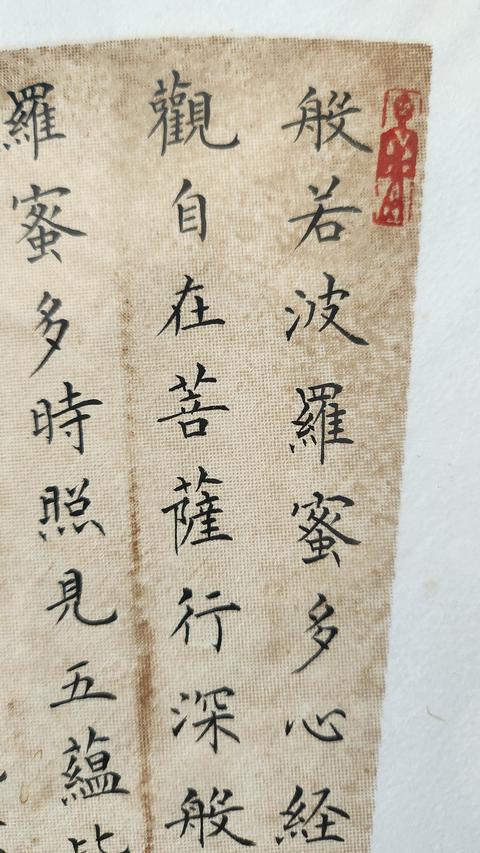 般若波羅蜜多心経
觀自在菩薩行深般
羅蜜多時照見五蘊皆